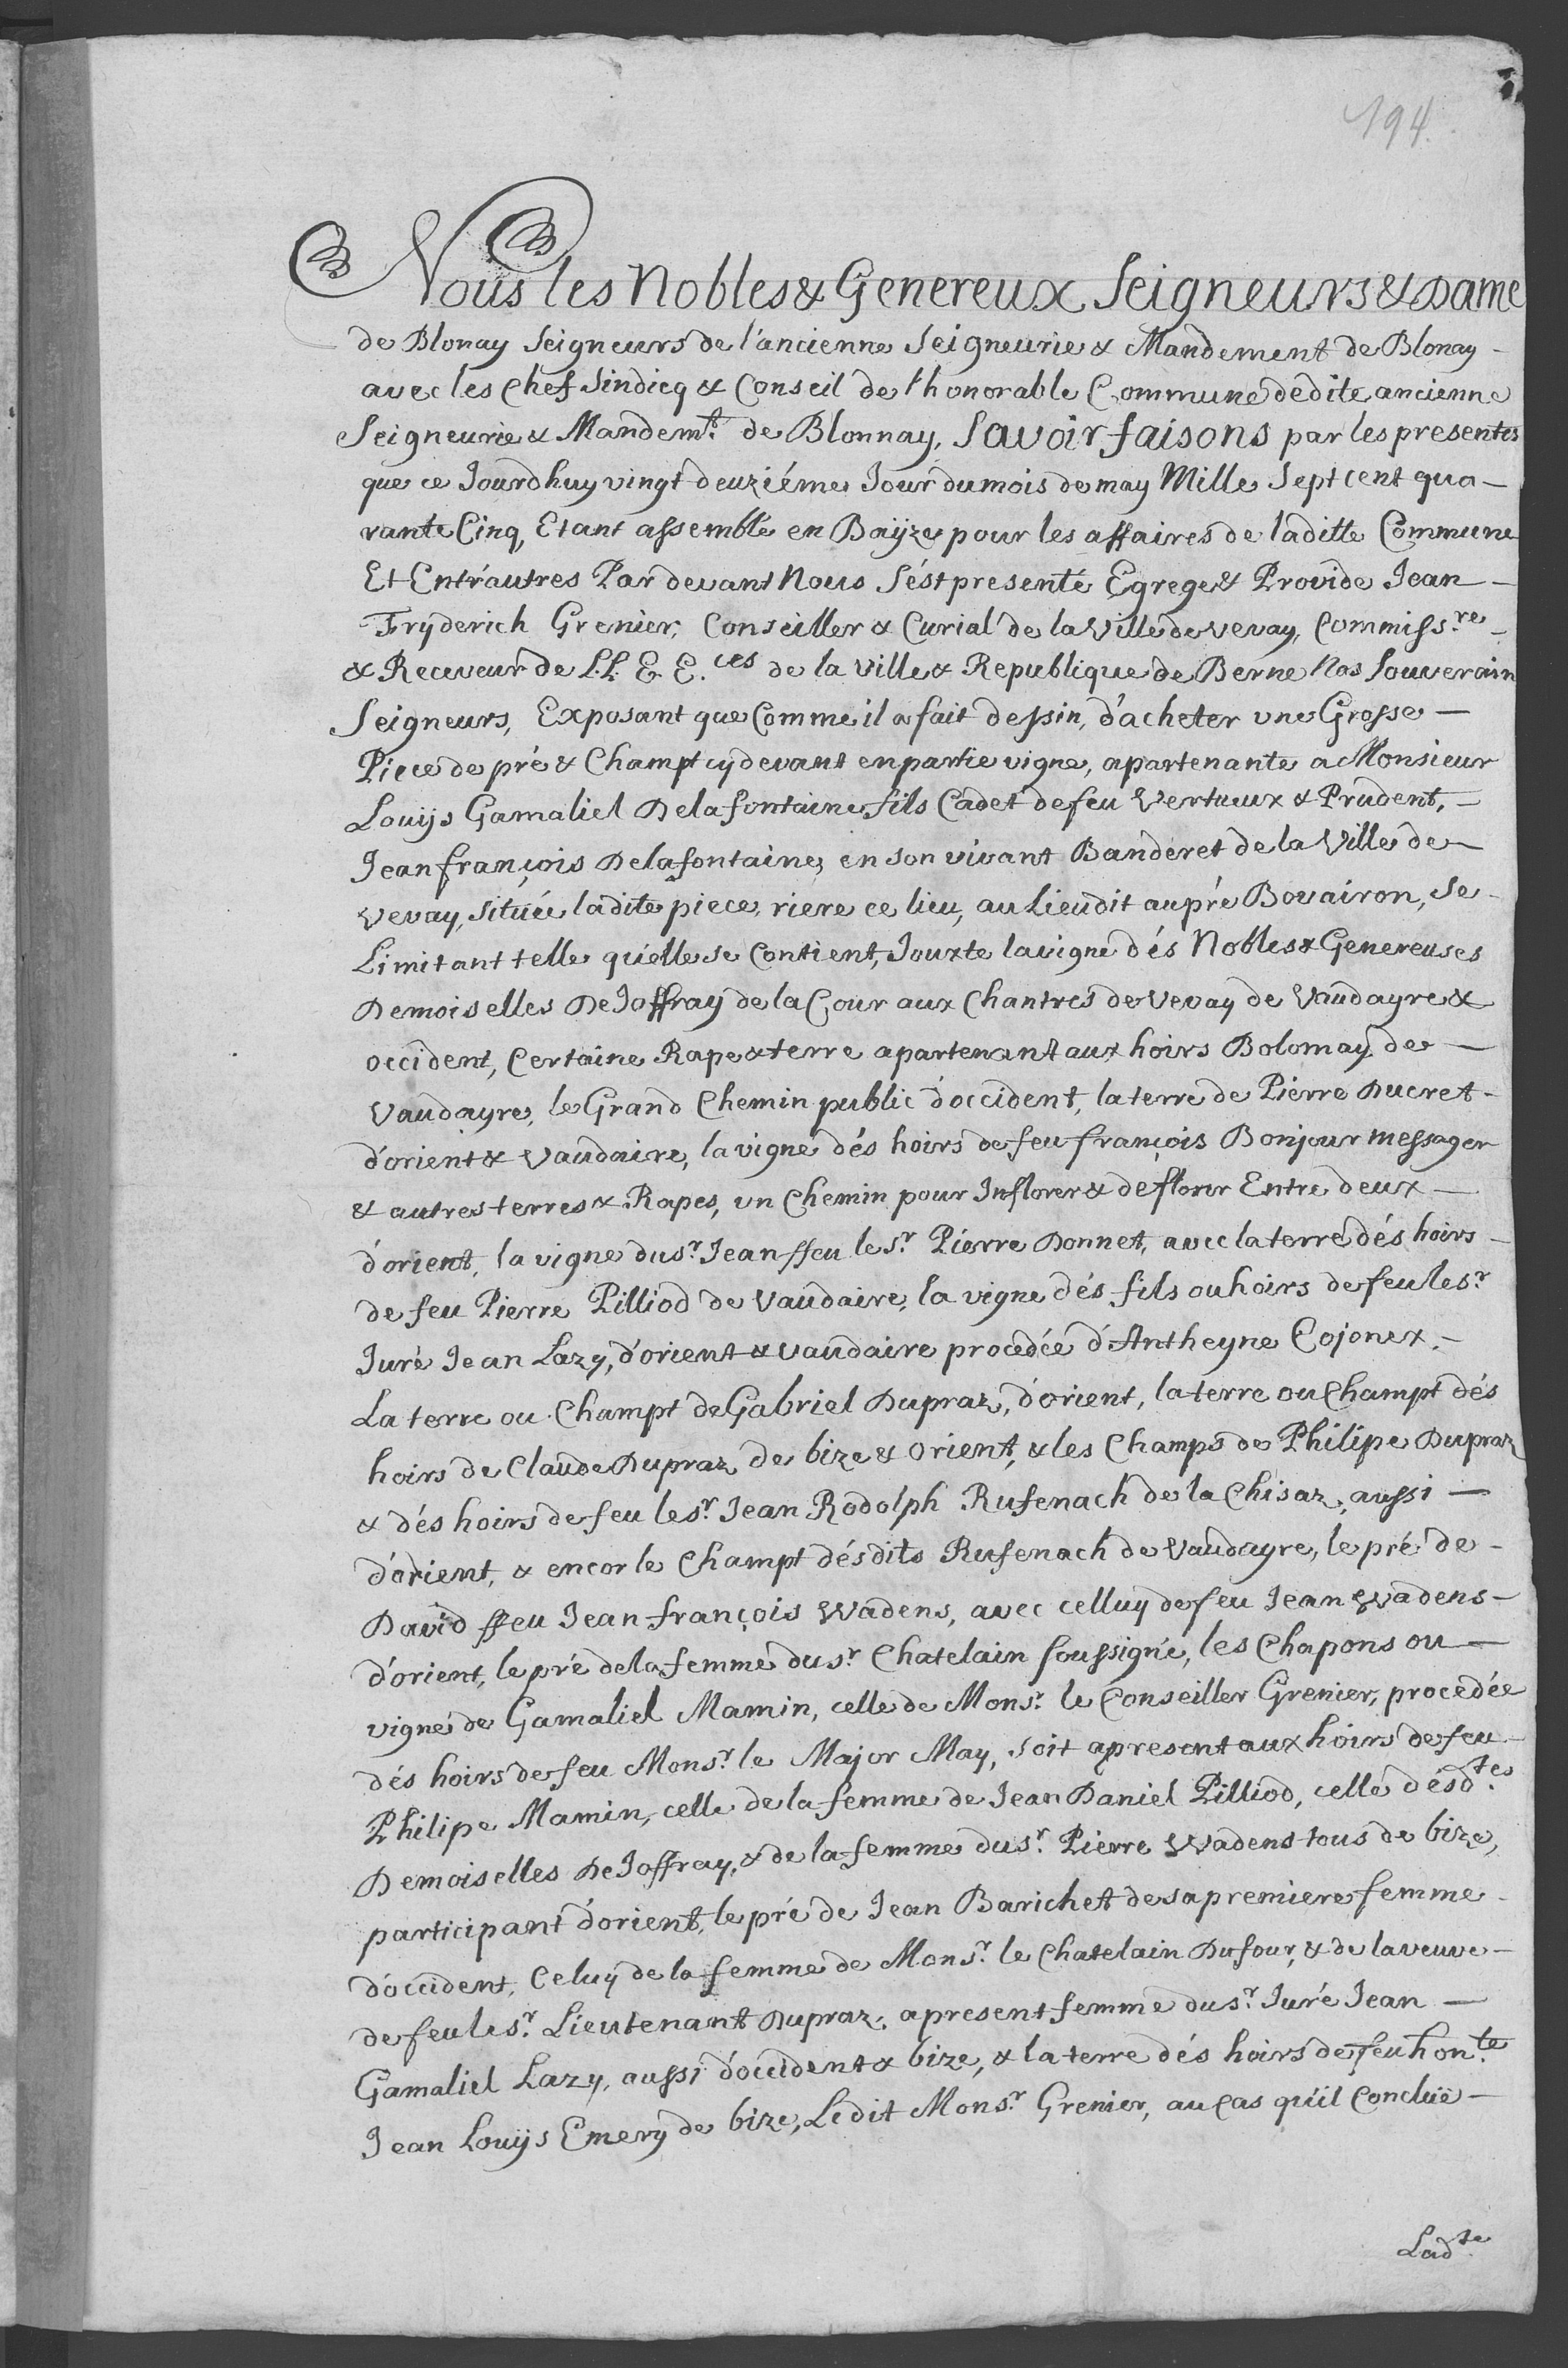 194.
Nous les Nobles & Genereux Seigneurs & Dame
de Blonay Seigneurs de l'ancienne Seigneurie & Mandement de Blonay -
avec les Chef Sindicq & Conseil de l'honorable Commune dedite ancienne
Seigneurie & Mandemt. de Blonnay, Savoir faisons par les presentes
que ce Jourdhuy vingt deuziéme Jour du mois de may Mille Sept cent qua-
rante Cinq, Etant assemblé en Bayze pour les affaires de laditte Commune
Et Entr'autres Par devant Nous S'ést presenté Egrege & Provide Jean -
Fryderich Grenier, Conseiller & Curial de la Ville de Vevay, Commissre. -
& Receveur de L.L. E. E.ces de la Ville & Republique de Berne Nos Souverain
Seigneurs, Exposant que Comme il a fait dessin, d'acheter une Grosse -
Piece de pré & Champt cydevant en partie vigne, apartenante a Monsieur
Louijs Gamaliel Delafontaine fils Cadet de feu Vertueux & Prudent, -
Jean françois Delafontaine, en son vivant Banderet de la Ville de -
Vevay, Située ladite piece, riere ce lieu, au Lieudit au pré Bovairon, Se -
Limitant telle qu'elle se Contient, Jouxte la vigne dés Nobles & Genereuses
Demoiselles De Joffray de la Cour aux Chantres de Vevay de Vaudayre &
occident, Certaine Rape & terre apartenant aux hoirs Bolomay de -
Vaudayre, le Grand Chemin public d'occident, la terre de Pierre Ducret -
d'orient & Vaudaire, la vigne dés hoirs de feu françois Bonjour messager
& autres terres & Rapes, un Chemin pour Inflorer & déflorer Entre deux -
d'orient, la vigne du sr. Jean ffeu le sr. Pierre Donnet, avec la terre dés hoirs -
de feu Pierre Pilliod de Vaudaire, la vigne dés fils ou hoirs de feu le sr.
Juré Jean Lazy, d'orient & vaudaire procedée d'Antheyne Cojonex. -
La terre ou Champt de Gabriel Dupraz, d'orient, la terre ou Champt dés
hoirs de Claude Dupraz de bize & orient, & les Champs de Philipe Dupraz
& dés hoirs de feu le sr. Jean Rodolph Rufenach de la Chisaz, aussi -
d'orient, & encor le Champt désdits Rufenach de Vaudayre, le pré de -
David ffeu Jean françois Wadens, avec celluy de feu Jean Wadens -
d'orient, le pré de la femme du sr. Chatelain soussigné, les Chapons ou -
vigne de Gamaliel Mamin, celle de Monsr. le Conseiller Grenier, procedée
dés hoirs de feu Monsr. le Major May, soit apresent aux hoirs de feu -
Philipe Mamin, celle de la femme de Jean Daniel Pilliod, celle désdtes.
Demoiselles De Joffray, & de la femme du sr. Pierre Wadens tous de bize,
participant d'orient, le pré de Jean Barichet de sa premiere femme -
d'occident, Celuy de la femme de Monsr. le Chatelain Dufour, & de la veuve -
de feu le sr. Lieutenant Dupraz, apresent femme du sr. Juré Jean -
Gamaliel Lazy, aussi d'occident & bize, & la terre dés hoirs de feu honte.
Jean Louijs Emery de bize, Ledit Monsr. Grenier, au Cas qu'il Conclüe -
Ladte.